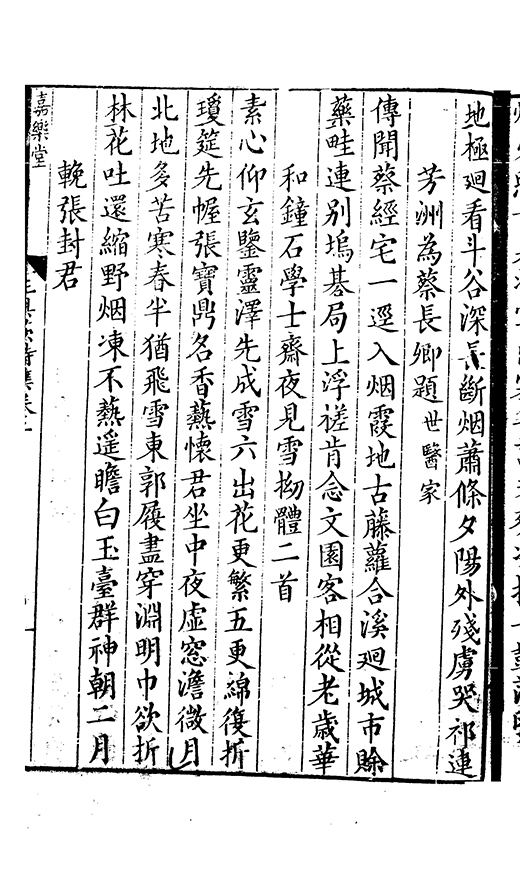 地極廻看斗谷深長斷烟蕭條夕陽外殘虜哭祁連
芳洲為蔡長卿題世醫家
傳聞蔡經宅一逕入烟霞地古藤蘿合溪廻城市賒
藥畦連別塢碁局上浮槎肯念文園客相從老歲華
和鐘石學士齋夜見雪拗體二首
素心仰玄鑒靈澤先成雪六出花更繁五更綿復折
瓊筵先幄張寶鼎名香爇懷君坐中夜虛窓澹微月
北地多苦寒春半猶飛雪東郭屐盡穿淵明巾欲折
林花吐還縮野烟凍不爇遥瞻白玉臺群神朝二月
輓張封君
嘉樂堂